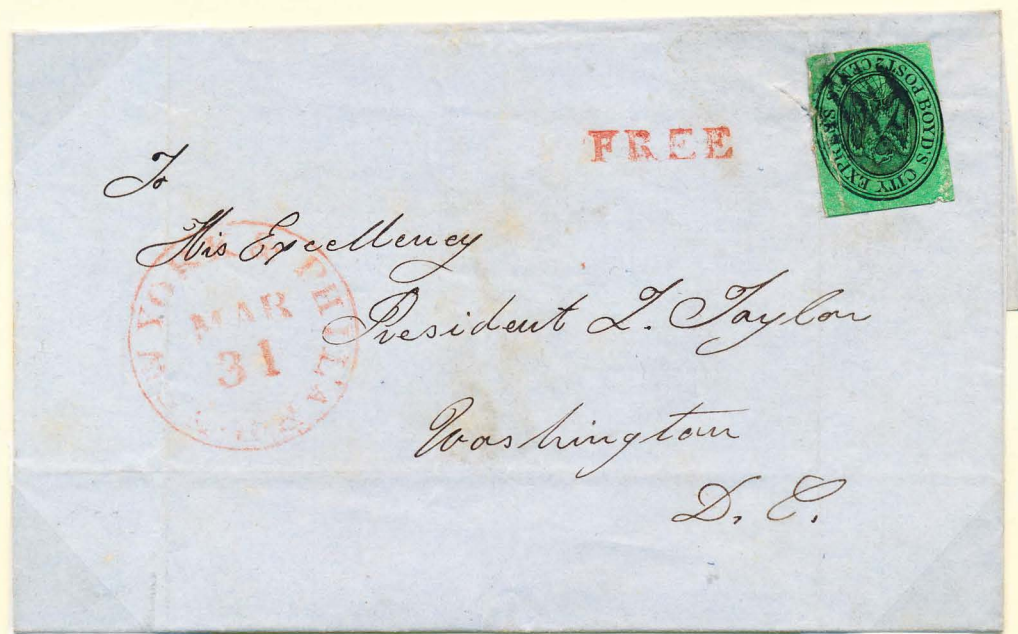 FREE
BOYD'S CITY EXPRESS POST 2 CENTS
To
His Excellency
President Z. Taylor
Washington
D. C.
NEW YORK & PHILA R.R.
MAR
31